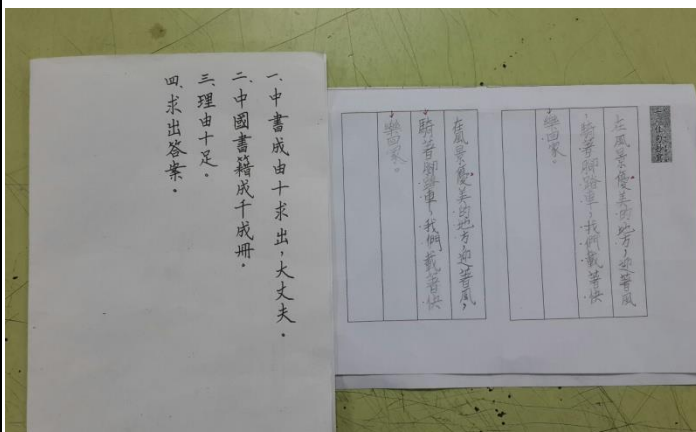 一、中書成由十求出，大丈夫。
二、中國書籍成千成冊。
三、理由十足。
四、求出答案。
在風景優美的地方，迎著風
，騎著腳踏車，我們載著快
樂回家。
在風景優美的地方，迎著風，
騎著腳踏車，我們載著快
樂回家。